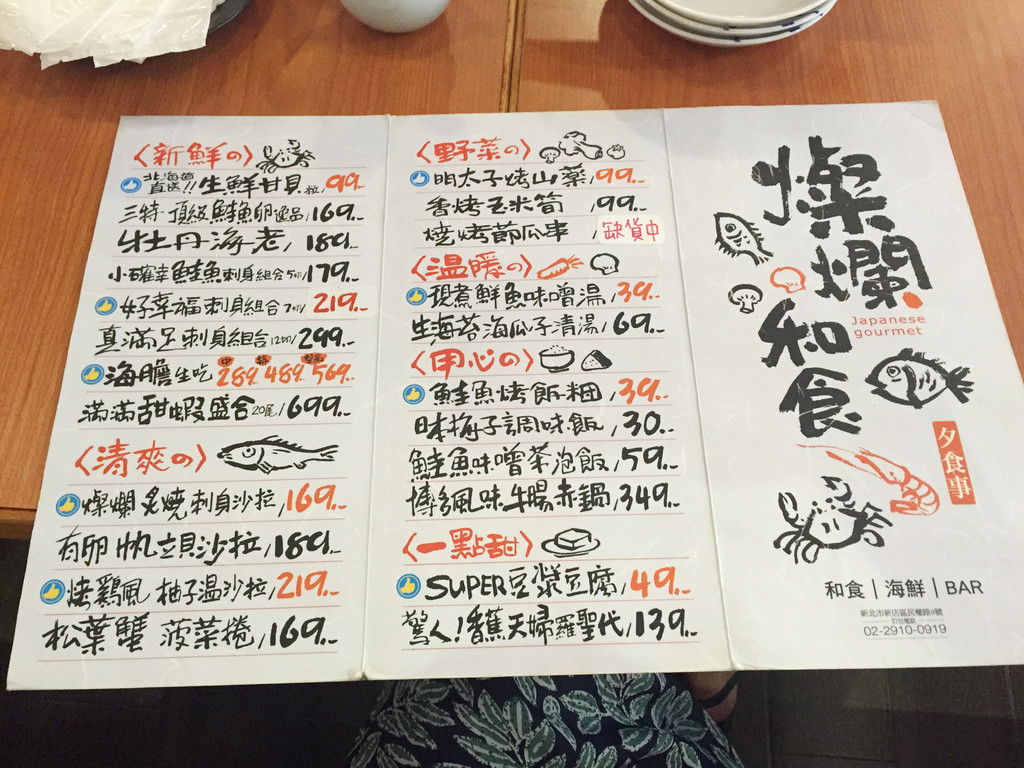 〈新鮮の〉
北海道直送!! 生鮮甘貝 粒/99.-
三特.頂級鮭魚卵逸品/169.-
牡丹海老/189.-
小確幸鮭魚刺身組合5切/179.-
好幸福刺身組合7切/219.-
真滿足刺身組合12切/299.-
中 特
海膽生吃 289. 489. 569.-
滿滿甜蝦盛合20尾/699.-
〈清爽の〉
燦爛炙燒刺身沙拉/169.-
有卵帆立貝沙拉/189.-
烤鷄風 柚子温沙拉/219.-
松葉蟹 菠菜捲/169.-
〈野菜の〉
明太子烤山藥/99.-
香烤玉米筍/99.-
燒烤節瓜串 缺貨中
〈温暖の〉
現煮鮮魚味噌湯/39.-
生海苔海瓜子清湯/69.-
〈甲心の〉
鮭魚烤飯糰/39.-
日本梅子調味飯/30.-
鮭魚味噌茶泡飯/59.-
博多風味牛腸赤鍋/349.-
〈一點甜〉
SUPER豆漿豆腐/49.-
驚人!香蕉天婦羅聖代/139.-
燦爛.和食
Japanese
gourmet
夕食事
和食|海鮮|BAR
新北市新店區民權路9號
訂位電話
02-2910-0919